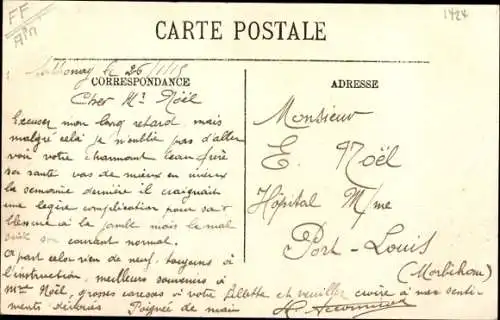 FF
1424
CARTE POSTALE
le 26/1/15
CORRESPONDANCE
ADRESSE
Cher Mr Noël
Excuser mon long retard, mais
malgré cela je n'oublie pas d'aller
voir votre charmant beau frère
sa santé vas de mieux en mieux
la semaine dernière il craignait
une legère complication pour sa
blessure à la jambe mais le mal
suit son courant normal.
A part cela rien de neuf, toujours à
l'instruction, meilleurs souvenirs à
Mme Noël, grosses caresses à votre fillette et veuillez croire à mes senti-
ments dévoués Poignée de main
Monsieur
E. Noël
Hôpital M/me
Port-Louis
(Morbihan)